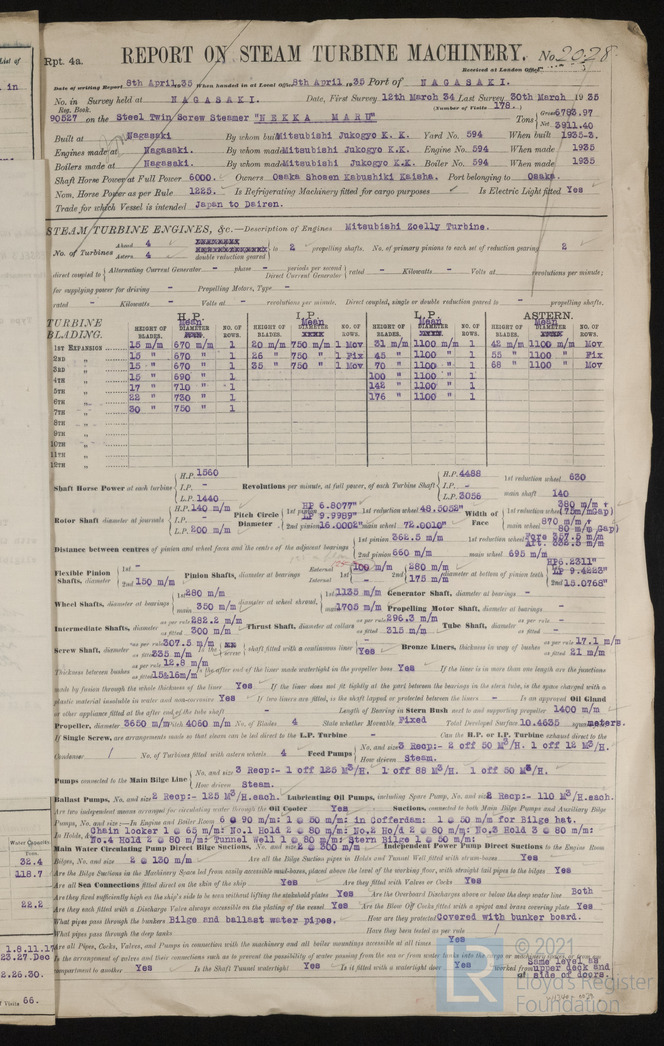 Rpt. 4a.
REPORT ON STEAM TURBINE MACHINERY. No. 2028
Received at London Office
Date of writing Report 8th April 35 When handed in at Local Office 8th April 1935 Port of NAGASAKI.
No. in Survey held at NAGASAKI. Date, First Survey 12th March 34 Last Survey 30th March 1935
Reg. Book. (Number of Visits 178.)
90527 on the Steel Twin Screw Steamer "NEKKA MARU" Tons Gross 6783.97
Net 3911.40
Built at Nagasaki By whom built Mitsubishi Jukogyo K. K. Yard No. 594 When built 1935-3.
Engines made at Nagasaki. By whom made Mitsubishi Jukogyo K. K. Engine No. 594 When made 1935
Boilers made at Nagasaki. By whom made Mitsubishi Jukogyo K.K. Boiler No. 594 When made 1935
Shaft Horse Power at Full Power 6000. Owners Osaka Shosen Kabushiki Kaisha. Port belonging to Osaka.
Nom. Horse Power as per Rule 1225. Is Refrigerating Machinery fitted for cargo purposes ✓ Is Electric Light fitted Yes
Trade for which Vessel is intended Japan to Dairen.
STEAM TURBINE ENGINES, &c.—Description of Engines Mitsubishi Zoelly Turbine.
No. of Turbines Ahead 4 Astern 4 double reduction geared to 2 propelling shafts. No. of primary pinions to each set of reduction gearing 2
direct coupled to Alternating Current Generator - phase - periods per second
Direct Current Generator rated - Kilowatts - Volts at - revolutions per minute;
for supplying power for driving - Propelling Motors, Type -
rated - Kilowatts - Volts at - revolutions per minute. Direct coupled, single or double reduction geared to - propelling shafts.
TURBINE BLADING. H.P. I.P. L.P. ASTERN.
HEIGHT OF BLADES. Mean DIAMETER NO. OF ROWS. HEIGHT OF BLADES. Mean DIAMETER NO. OF ROWS. HEIGHT OF BLADES. Mean DIAMETER NO. OF ROWS. HEIGHT OF BLADES. Mean DIAMETER NO. OF ROWS.
1ST EXPANSION 15 m/m 670 m/m 1 20 m/m 750 m/m 1 Mov 31 m/m 1100 m/m 1 42 m/m 1100 m/m Mov
2ND „ 15 " 670 " 1 26 " 750 " 1 Fix 45 " 1100 " 1 55 " 1100 " Fix
3RD „ 15 " 670 " 1 35 " 750 " 1 Mov 70 " 1100 " 1 68 " 1100 " Mov
4TH „ 15 " 690 " 1 100 " 1100 " 1
5TH „ 17 " 710 " 1 142 " 1100 " 1
6TH „ 22 " 730 " 1 176 " 1100 " 1
7TH „ 30 " 750 " 1
8TH „
9TH „
10TH „
11TH „
12TH „
Shaft Horse Power at each turbine H.P. 1560 I.P. - L.P. 1440 Revolutions per minute, at full power, of each Turbine Shaft H.P. 4488 I.P. - L.P. 3056 1st reduction wheel 630
main shaft 140
Rotor Shaft diameter at journals H.P. 140 m/m I.P. - L.P. 200 m/m Pitch Circle Diameter 1st pinion HP 6.8077" LP 9.9989" 1st reduction wheel 48.5052" Width of Face 1st reduction wheel 380 m/m + (75m/mGap)
2nd pinion 16.0002" main wheel 72.0010" main wheel 870 m/m + 80 m/m Gap)
Distance between centres of pinion and wheel faces and the centre of the adjacent bearings 1st pinion 362.5 m/m 1st reduction wheel Fore 357.5 m/m Aft. 332.5 m/m
2nd pinion 660 m/m main wheel 695 m/m
Flexible Pinion Shafts, diameter 1st - 2nd 150 m/m Pinion Shafts, diameter at bearings External 1st 100 m/m 280 m/m Internal - 175 m/m diameter at bottom of pinion teeth 1st HP6.2311" LP 9.4223" 2nd 15.0768"
Wheel Shafts, diameter at bearings 1st 280 m/m main 350 m/m diameter at wheel shroud, 1st 1135 m/m main 1705 m/m Generator Shaft, diameter at bearings -
Propelling Motor Shaft, diameter at bearings -
Intermediate Shafts, diameter as per rule 282.2 m/m as fitted 300 m/m Thrust Shaft, diameter at collars as per rule 296.3 m/m as fitted 315 m/m Tube Shaft, diameter as per rule - as fitted -
Screw Shaft, diameter as per rule 307.5 m/m as fitted 335 m/m Is the screw shaft fitted with a continuous liner Yes Bronze Liners, thickness in way of bushes as per rule 17.1 m/m as fitted 21 m/m
Thickness between bushes as per rule 12.8 m/m as fitted 15&16m/m Is the after end of the liner made watertight in the propeller boss Yes If the liner is in more than one length are the junctions
made by fusion through the whole thickness of the liner Yes If the liner does not fit tightly at the part between the bearings in the stern tube, is the space charged with a
plastic material insoluble in water and non-corrosive Yes If two liners are fitted, is the shaft lapped or protected between the liners - Is an approved Oil Gland
or other appliance fitted at the after end of the tube shaft - Length of Bearing in Stern Bush next to and supporting propeller 1400 m/m
Propeller, diameter 3650 m/m Pitch 4060 m/m No. of Blades 4 State whether Moveable Fixed Total Developed Surface 10.4635 square meters.
If Single Screw, are arrangements made so that steam can be led direct to the L.P. Turbine - Can the H.P. or I.P. Turbine exhaust direct to the
Condenser / No. of Turbines fitted with astern wheels 4 Feed Pumps No. and size 3 Recp:- 2 off 50 M³/H. 1 off 12 M³/H.
How driven Steam.
Pumps connected to the Main Bilge Line No. and size 3 Recp:- 1 off 125 M³/H. 1 off 88 M³/H. 1 off 50 M³/H.
How driven Steam.
Ballast Pumps, No. and size 2 Recp:- 125 M³/H.each. Lubricating Oil Pumps, including Spare Pump, No. and size 2 Recp:- 110 M³/H.each.
Are two independent means arranged for circulating water through the Oil Cooler Yes Suctions, connected to both Main Bilge Pumps and Auxiliary Bilge
Pumps, No. and size:—In Engine and Boiler Room 6 @ 90 m/m: 1 @ 50 m/m: in Cofferdam: 1 @ 50 m/m for Bilge hat.
In Holds, &c. Chain locker 1 @ 65 m/m: No.1 Hold 2 @ 80 m/m: No.2 Hold 2 @ 80 m/m: No.3 Hold 3 @ 80 m/m:
No.4 Hold 2 @ 80 m/m: Tunnel Well 1 @ 80 m/m: Stern Bilge 1 @ 50 m/m:
Main Water Circulating Pump Direct Bilge Suctions, No. and size 2 @ 300 m/m Independent Power Pump Direct Suctions to the Engine Room
Bilges, No. and size 2 @ 130 m/m Are all the Bilge Suction pipes in Holds and Tunnel Well fitted with strum-boxes Yes
Are the Bilge Suctions in the Machinery Space led from easily accessible mud-boxes, placed above the level of the working floor, with straight tail pipes to the bilges Yes
Are all Sea Connections fitted direct on the skin of the ship Yes Are they fitted with Valves or Cocks Yes
Are they fixed sufficiently high on the ship's side to be seen without lifting the stokehold plates Yes Are the Overboard Discharges above or below the deep water line Both
Are they each fitted with a Discharge Valve always accessible on the plating of the vessel Yes Are the Blow Off Cocks fitted with a spigot and brass covering plate Yes
What pipes pass through the bunkers Bilge and ballast water pipes. How are they protected Covered with bunker board.
What pipes pass through the deep tanks Have they been tested as per rule /
Are all Pipes, Cocks, Valves, and Pumps in connection with the machinery and all boiler mountings accessible at all times Yes
Is the arrangement of valves and their connections such as to prevent the possibility of water passing from the sea or from water tanks into the cargo or machinery spaces, or from one
compartment to another Yes Is the Shaft Tunnel watertight Yes Is it fitted with a watertight door Yes Worked from Same level as upper deck and
at side of doors.
List of
in
Water Capacities
Tons.
32.4
118.7
22.2
1.8.11.17
23.27.Dec
2.26.30.
of Visits 66.
© 2021
LR
Lloyd's Register
Foundation